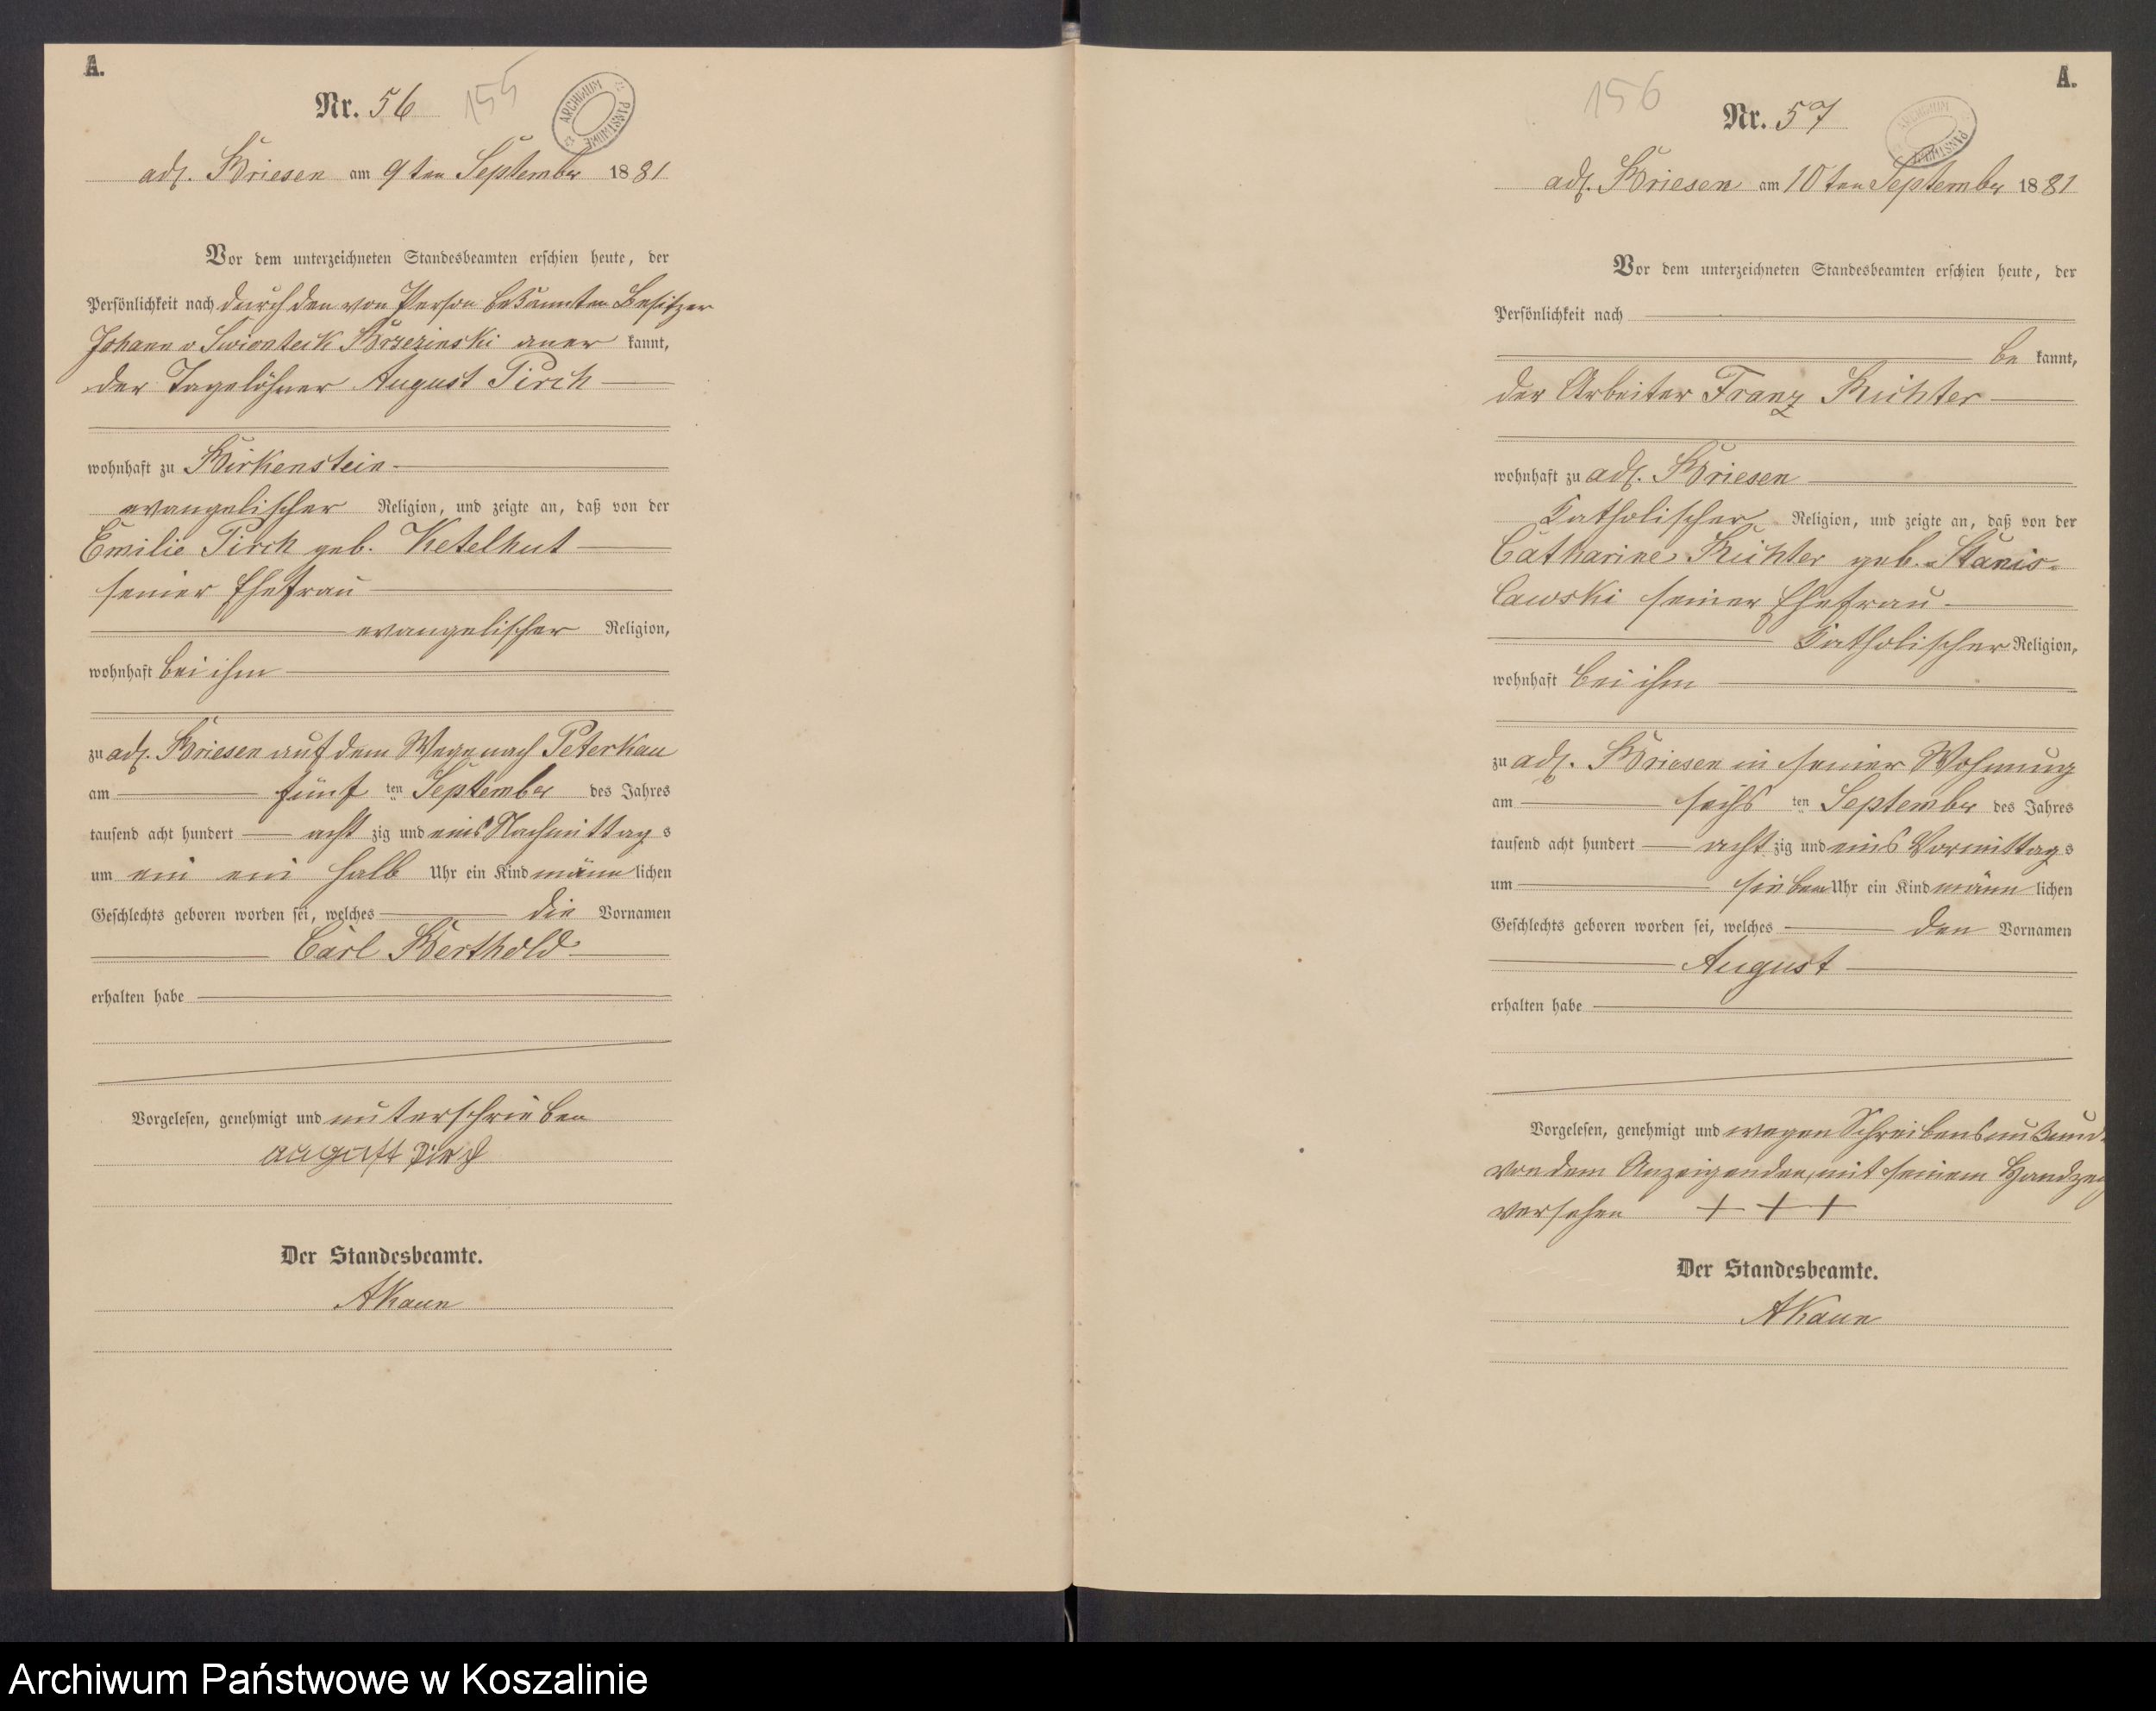 A.
Nr. 56
155
ARCHIWUM PAŃSTWOWE
adl. Briesen am 9ten September 1881
Vor dem unterzeichneten Standesbeamten erschien heute, der
Persönlichkeit nach durch den von Person bekannten Besitzer
Johann v Swionteck Brzezinski aner kannt,
der Tagelöhner August Pirch
wohnhaft zu Birkenstein
evangelischer Religion, und zeigte an, daß von der
Emilie Pirch geb. Ketelhut
seiner Ehefrau
evangelischer Religion,
wohnhaft bei ihm
zu adl. Briesen auf dem Wege nach Peterkau
am fünf ten September des Jahres
tausend acht hundert acht zig und eins Nachmittag s
um ein ein halb Uhr ein Kind männ lichen
Geschlechts geboren worden sei, welches die Vornamen
Carl Berthold
erhalten habe
Vorgelesen, genehmigt und unterschrieben
august Pirch
Der Standesbeamte.
AKaun
A.
156
Nr. 57
ARCHIWUM PAŃSTWOWE
adl. Briesen am 10ten September 1881
Vor dem unterzeichneten Standesbeamten erschien heute, der
Persönlichkeit nach
be kannt,
der Arbeiter Franz Richter
wohnhaft zu adl. Briesen
katholischer Religion, und zeigte an, daß von der
Catharine Richter geb. Stanis-
lawski seiner Ehefrau
katholischer Religion,
wohnhaft bei ihm
zu adl. Briesen in seiner Wohnung
am sechs ten September des Jahres
tausend acht hundert acht zig und eins Vormittag s
um sieben Uhr ein Kind männ lichen
Geschlechts geboren worden sei, welches den Vornamen
August
erhalten habe
Vorgelesen, genehmigt und wegen Schreibensunkund
von dem Anzeigenden, mit seinem Handzei
versehen + + +
Der Standesbeamte.
AKaun
Archiwum Państwowe w Koszalinie